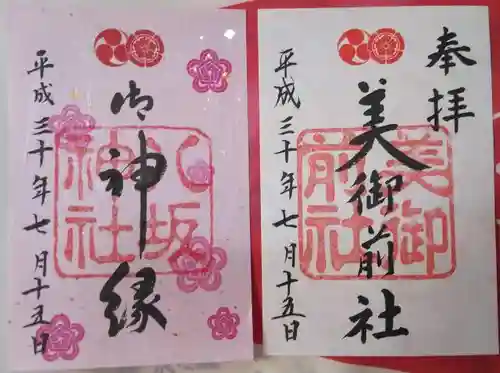 奉拝
美御前社
美御前社
平成三十年七月十五日
御神縁
八坂神社
平成三十年七月十五日